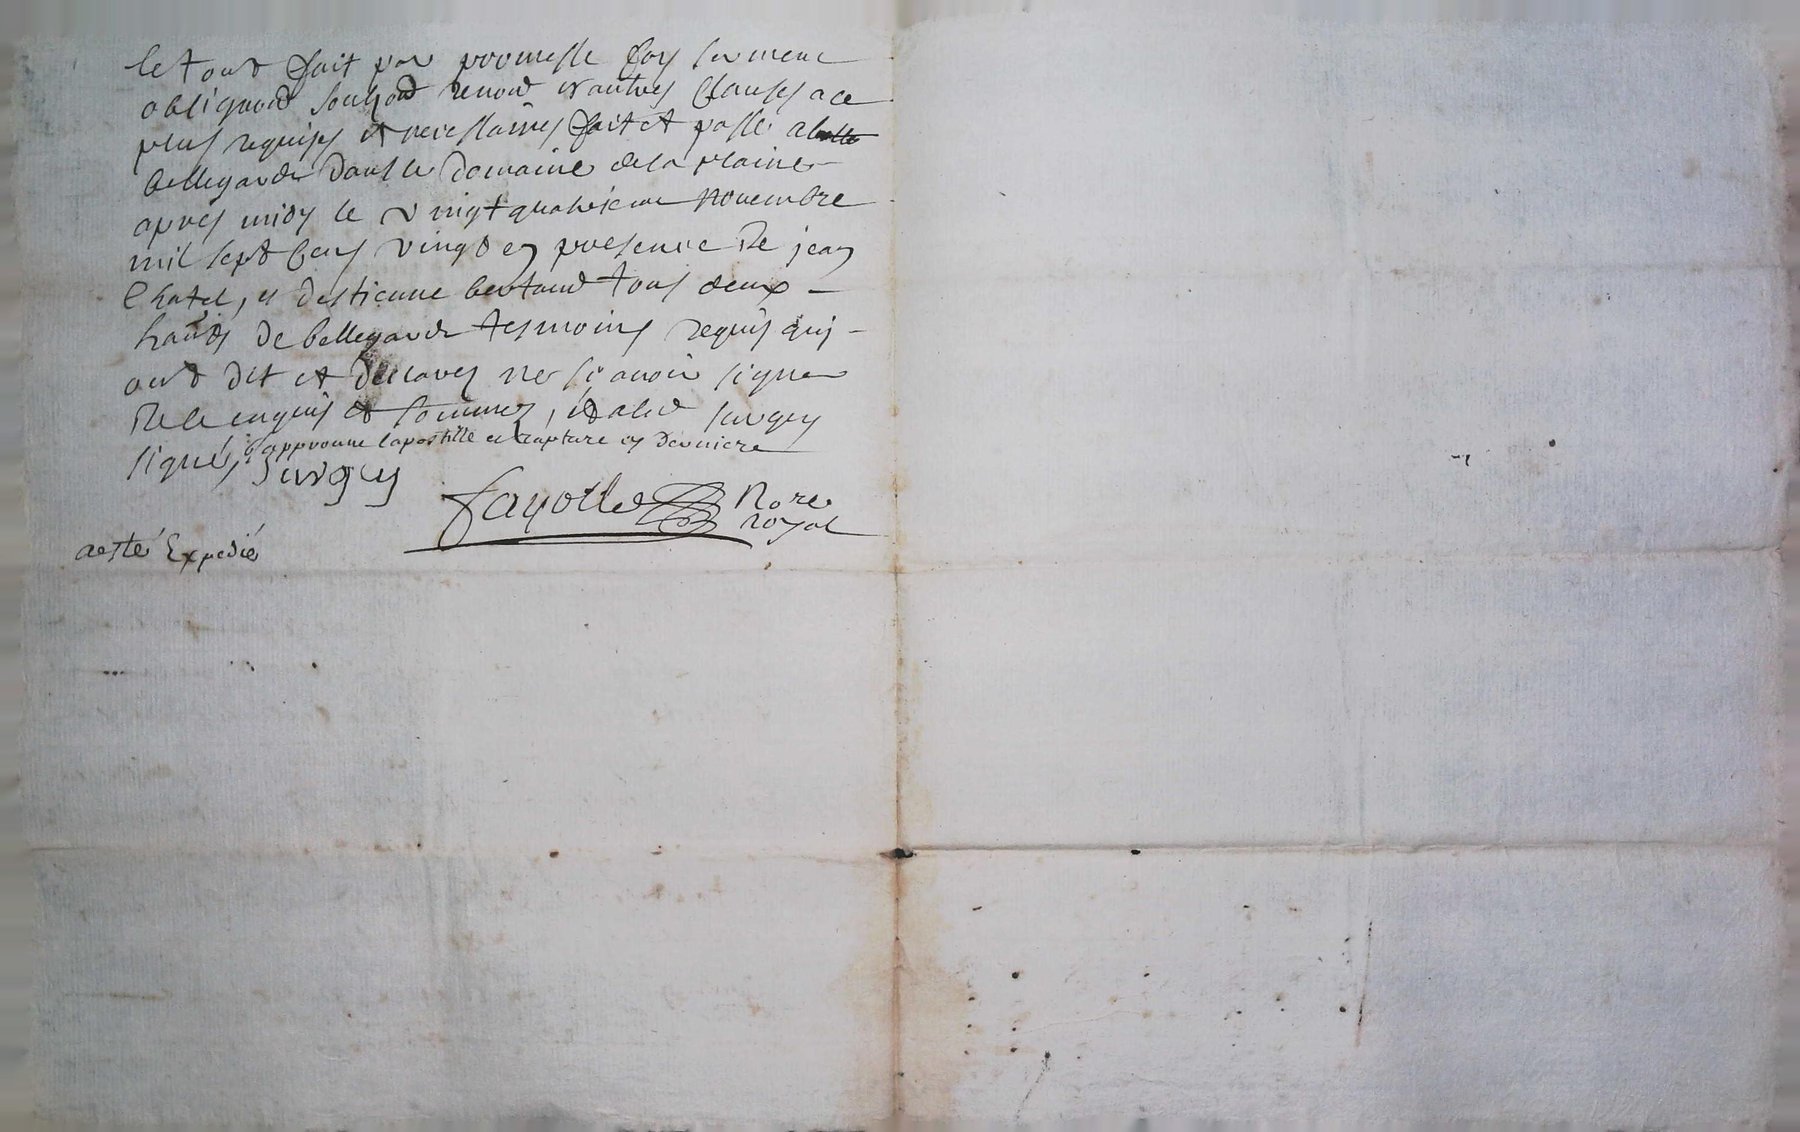 le tout fait par promesse foy serment
obligaõn soubzõn renonõn et autres clauses a ce
plus requises et necessaires fait et passé a
bellegarde dans le domaine de la plaine
apres midy le vingt quatrieme novembre
mil sept cens vingt en presence de jean
Chatel, et destienne bertaud tous deux
hantz de bellegarde tesmoins requis qui
ont dit et declarez ne sçavoir signer
de ce enquis et sommez, et surgey
signé, japprouve lapostille et rapture en derniere
Surgey
fayolle No.re
royal
a esté Expedié